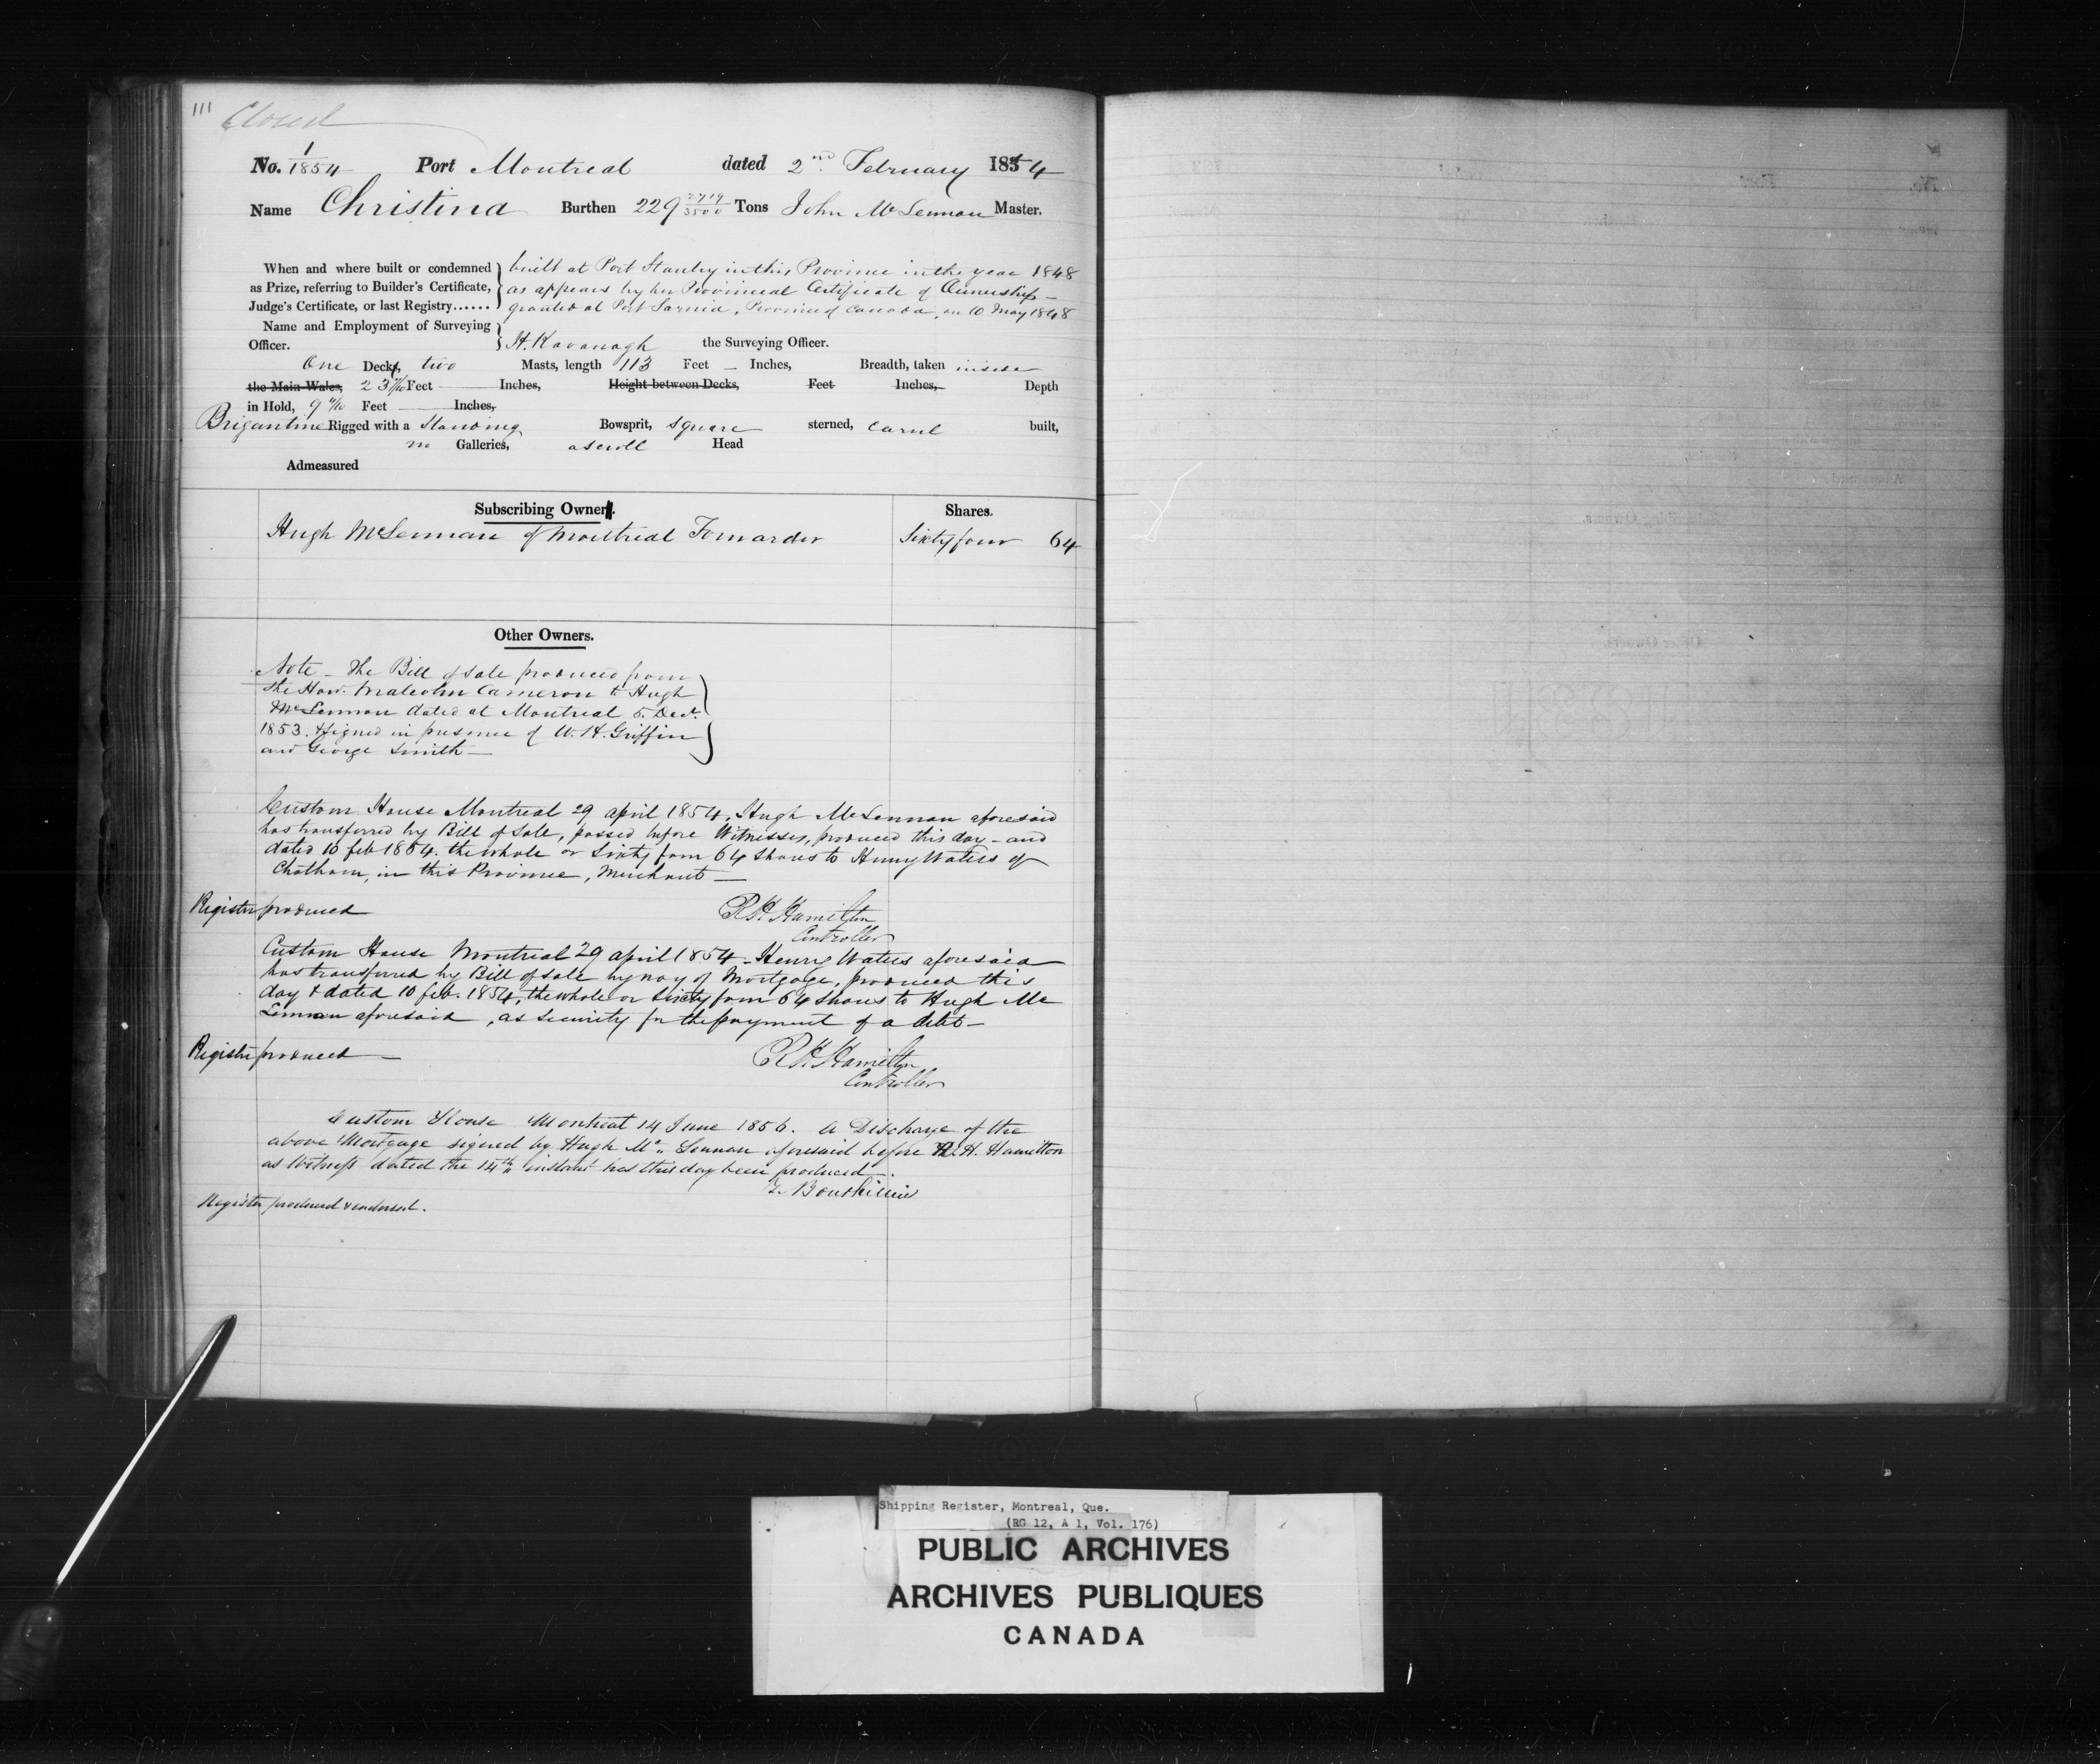 111 Closed
No. 1/1854 Port Montreal dated 2nd February 1854
Name Christina Burthen 229 2719/3500 Tons John McLennan Master.
When and where built or condemned } built at Port Stanley in this Province in the year 1848
as Prize, referring to Builder's Certificate, as appears by her Provincial Certificate of Ownership –
Judge's Certificate, or last Registry...... granted at Port Sarnia, Province of Canada, on 10 May 1848
Name and Employment of Surveying
Officer. } H. Kavanagh the Surveying Officer.
One Deck, two Masts, length 113 Feet – Inches, Breadth, taken inside
the Main Wales, 23 /10 Feet — Inches, Height between Decks, Feet Inches, Depth
in Hold, 9 /10 Feet — Inches,
Brigantine Rigged with a Standing Bowsprit, square sterned, carvel built,
no Galleries, a scroll Head
Admeasured
Subscribing Owner. Shares.
Hugh McLennan of Montreal Forwarder Sixty four 64
Other Owners.
Note – The Bill of Sale produced from
the Hon. Malcolm Cameron to Hugh
McLennan dated at Montreal 5. Dect.
1853. & signed in presence of W. H. Griffin
and George Smith —
Custom House Montreal 29 april 1854, Hugh McLennan aforesaid
has transferred by Bill of Sale, passed before Witnesses, produced this day – and
dated 10 feb 1854. the whole or Sixty four 64 Shares to Henry Waters of
Chatham, in this Province, Merchant —
Register produced R H Hamilton
Controller
Custom House Montreal 29 april 1854 – Henry Waters aforesaid
has transferred by Bill of Sale by way of Mortgage, produced this
day & dated 10 feb. 1854, the whole or Sixty four 64 Shares to Hugh Mc
Lennan aforesaid, as Security for the payment of a debt –
Register produced — R H Hamilton
Controller
Custom House Montreal 14 June 1856. A Discharge of the
above Mortgage signed by Hugh Mc Lennan aforesaid before R. H. Hamilton
as Witness dated the 14th instant has this day been produced.
Register produced & endorsed.
Shipping Register, Montreal, Que.
(RG 12, A 1, Vol. 176)
PUBLIC ARCHIVES
ARCHIVES PUBLIQUES
CANADA